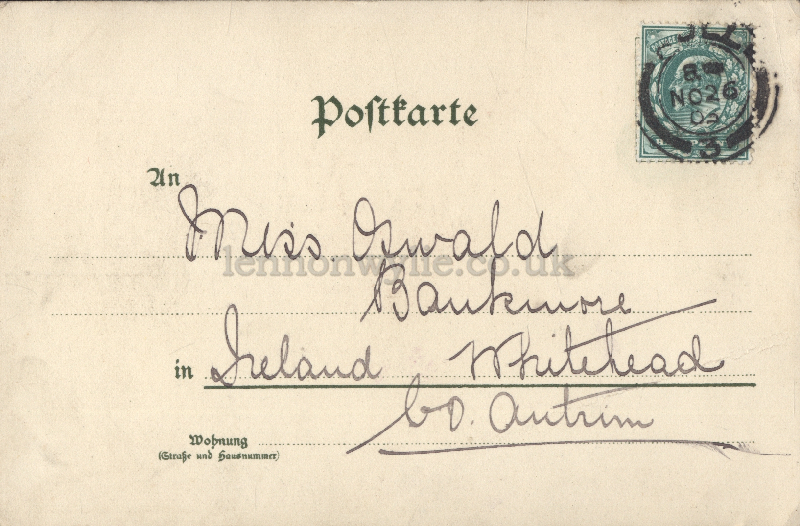 Postkarte
An
Miss. Oswald
lennonwylie.co.uk
Bankmore
in Ireland Whitehead
Co. Antrim
Wohnung
(Straße und Hausnummer)
NO 26
05
3